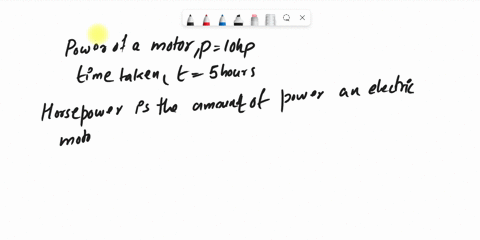 Power of a motor, P = 10hp
time taken, t = 5 hours
Horsepower is the amount of power an electric
moto